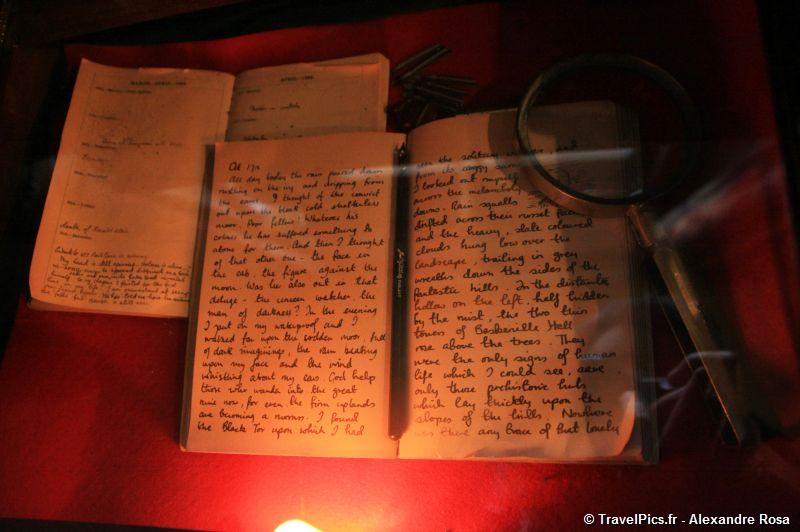 MARCH - APRIL
APRIL
Oct 17th
All day today the rain poured down
rustling on the ivy and dripping from
the eaves. I thought of the convict
out upon the bleak cold shelterless
moor. Poor fellow! Whatever his
crimes he has suffered something to
atone for them. And then I thought
of that other one - the face in
the cab, the figure against the
moon. Was he also out in that
deluge - the unseen watcher, the
man of darkness? In the evening
I put on my waterproof and I
walked far upon the sodden moor, full
of dark imaginings, the rain beating
upon my face and the wind
whistling about my ears. God help
those who wander into the great
mire now, for even the firm uplands
are becoming a morass. I found
the Black Tor upon which I had
the solitary
from its craggy
I looked out myself
across the melancholy
downs. Rain squalls
drifted across their russet face
and the heavy, slate coloured
clouds hung low over the
landscape, trailing in grey
wreaths down the sides of the
fantastic hills. In the distant
hollow on the left, half hidden
by the mist, the two thin
towers of Baskerville Hall
rose above the trees. They
were the only signs of human
life which I could see, save
only those prehistoric huts
which lay thickly upon the
slopes of the hills. Nowhere
was there any trace of that lonely
© TravelPics.fr - Alexandre Rosa